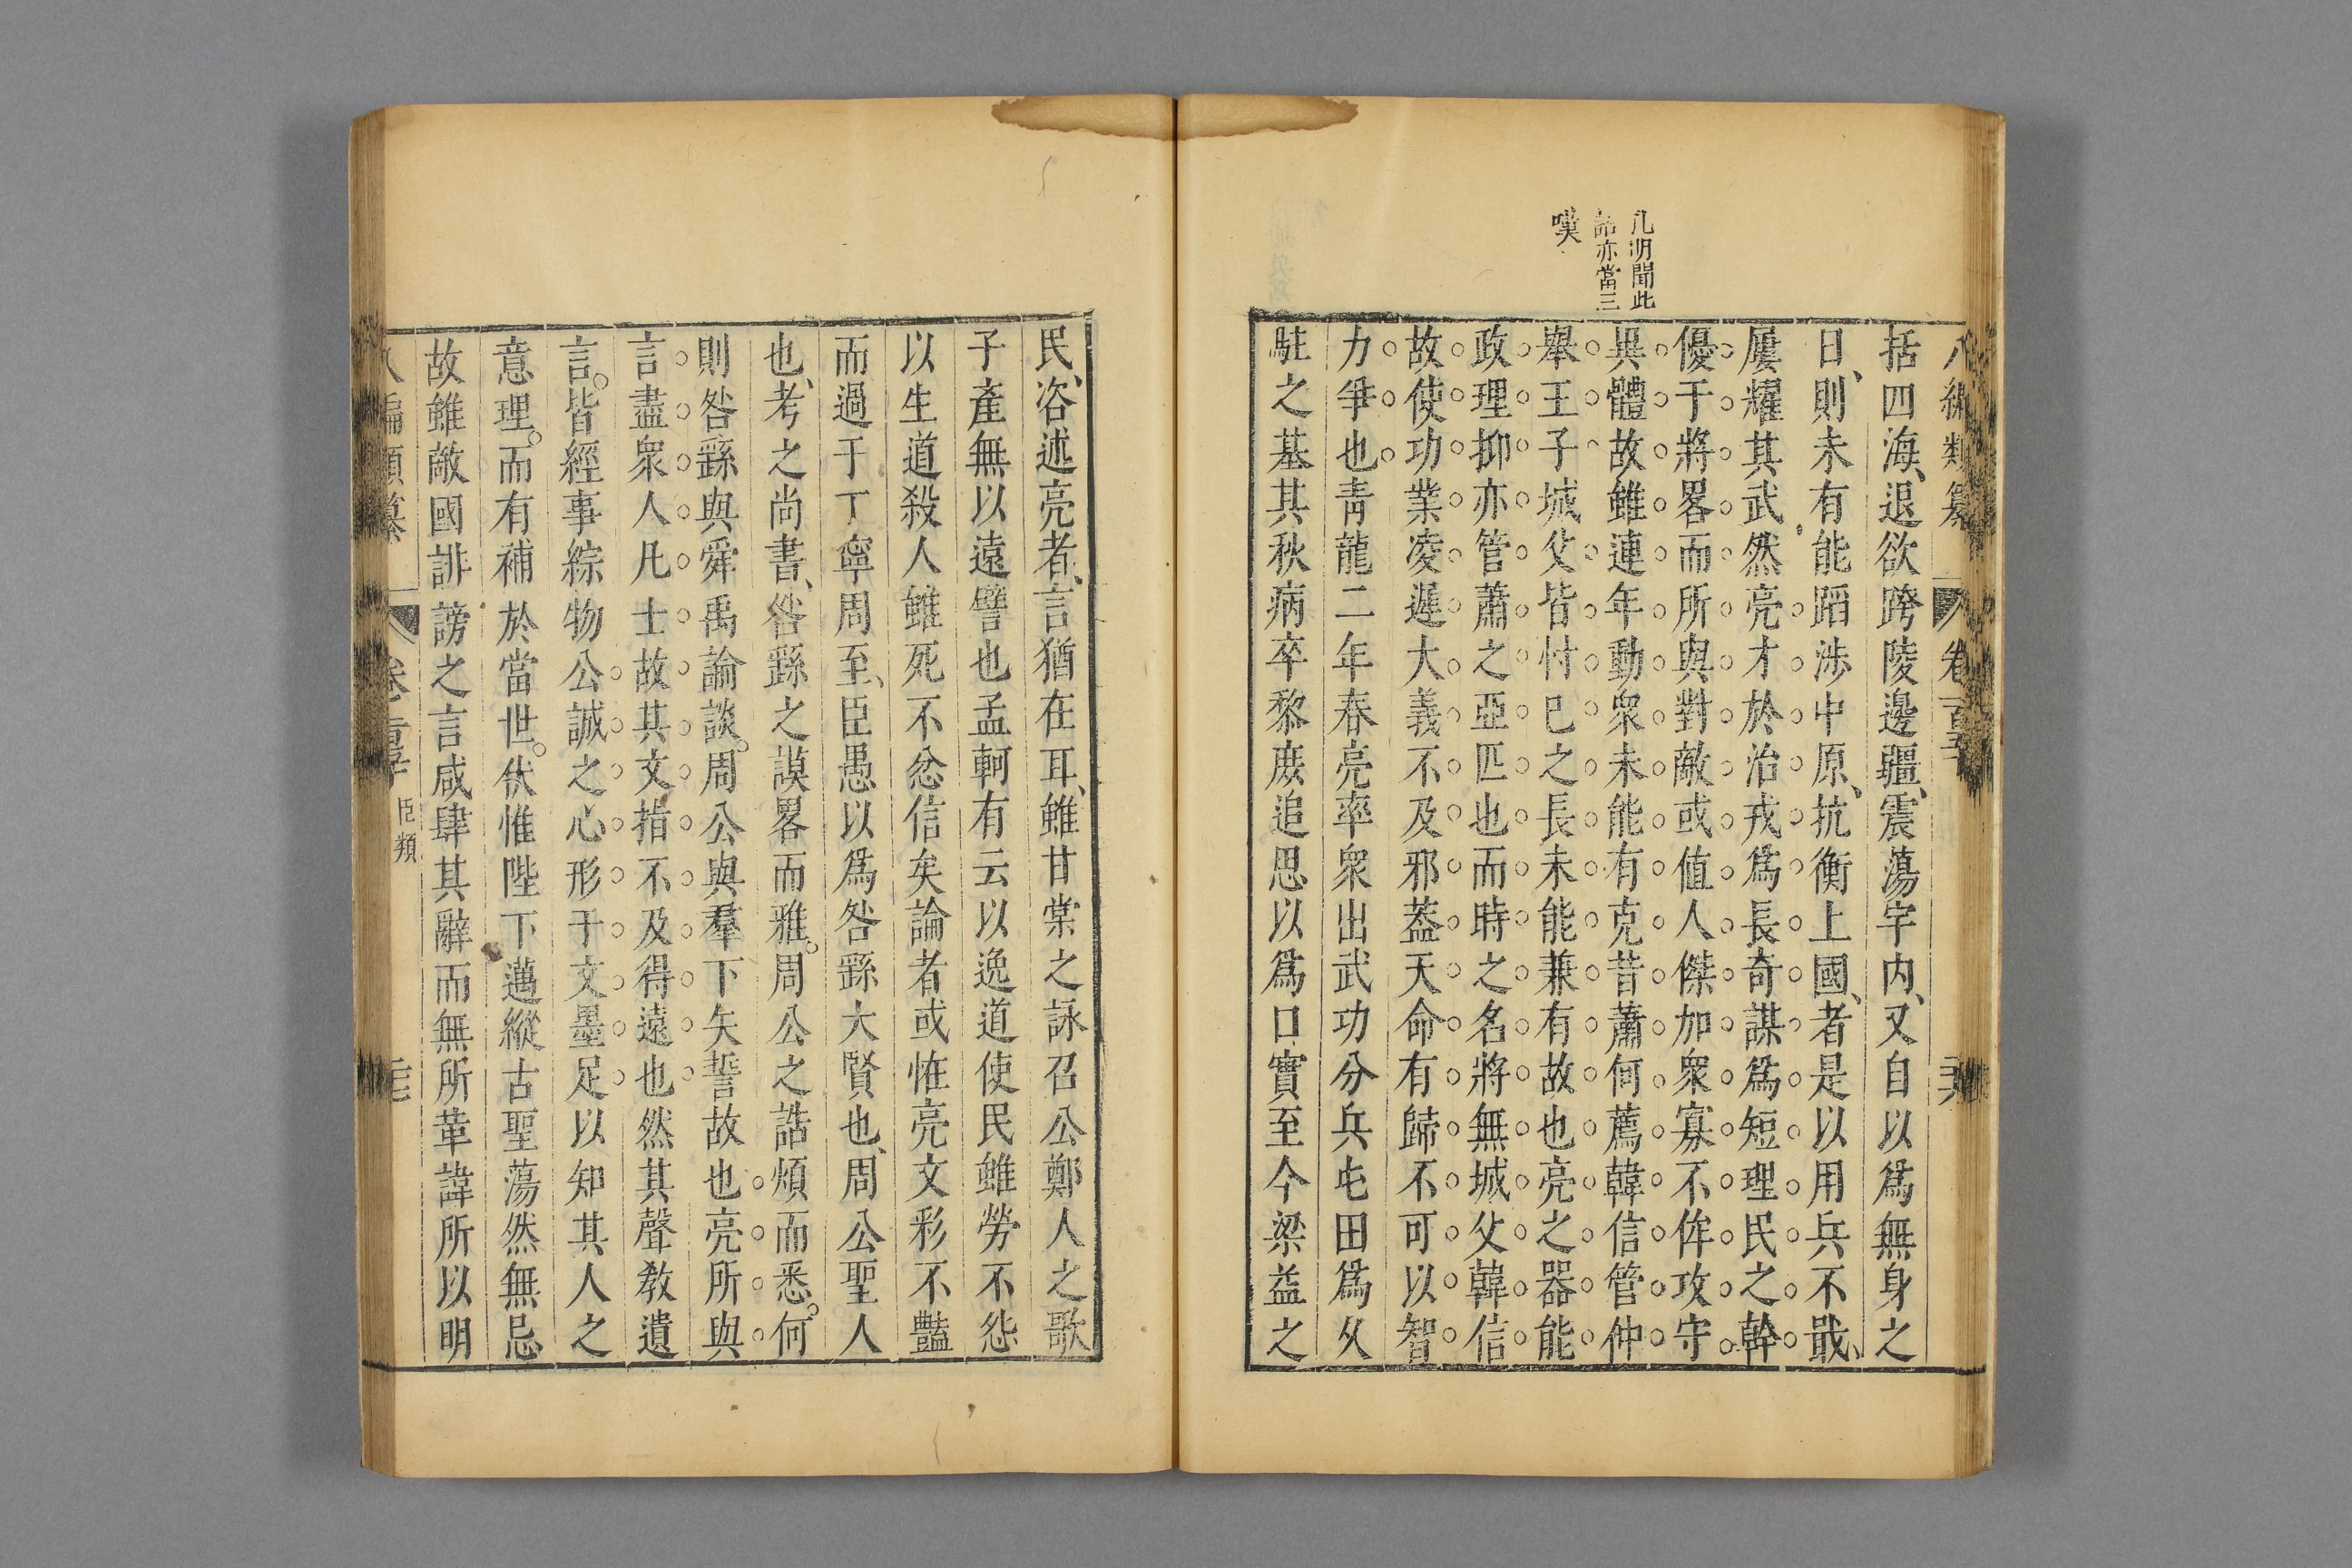 八編類纂 卷一百五 三六
孔明聞此
語亦當三
嘆
括四海退欲跨陵邊疆震蕩宇内又自以爲無身之
日則未有能蹈涉中原抗衡上國者是以用兵不戢
屢耀其武然亮才於治戎爲長奇謀爲短理民之幹
優于將畧而所與對敵或值人傑加衆寡不侔攻守
異體故雖連年動衆未能有克昔蕭何薦韓信管仲
舉王子城父皆忖己之長未能兼有故也亮之器能
政理抑亦管蕭之亞匹也而時之名將無城父韓信
故使功業凌遲大義不及邪葢天命有歸不可以智
力爭也青龍二年春亮率衆出武功分兵屯田爲久
駐之基其秋病卒黎庶追思以爲口實至今梁益之
民咨述亮者言猶在耳雖甘棠之詠召公鄭人之歌
子產無以遠譬也孟軻有云以逸道使民雖勞不怨
以生道殺人雖死不忿信矣論者或恠亮文彩不豔
而過于丁寧周至臣愚以爲咎繇大賢也周公聖人
也考之尚書咎繇之謨畧而雅周公之誥煩而悉何
則咎繇與舜禹論談周公與羣下矢誓故也亮所與
言盡衆人凡士故其文指不及得遠也然其聲敎遺
言皆經事綜物公誠之心形于文墨足以知其人之
意理而有補於當世伏惟陛下邁縱古聖蕩然無忌
故雖敵國誹謗之言咸肆其辭而無所革諱所以明
八編類纂 臣類